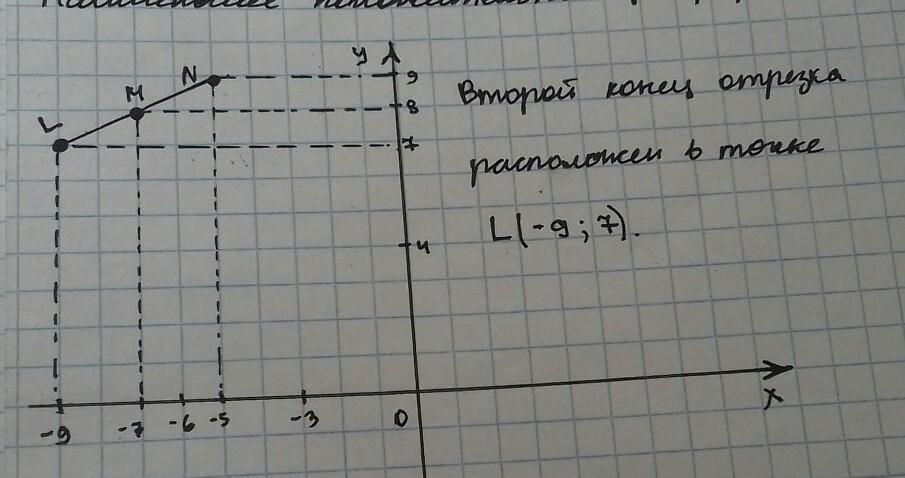 y
N 9
M 8
L 7
4
-9 -7 -6 -5 -3 0 x
Второй конец отрезка
расположен в точке
L(-9; 7).